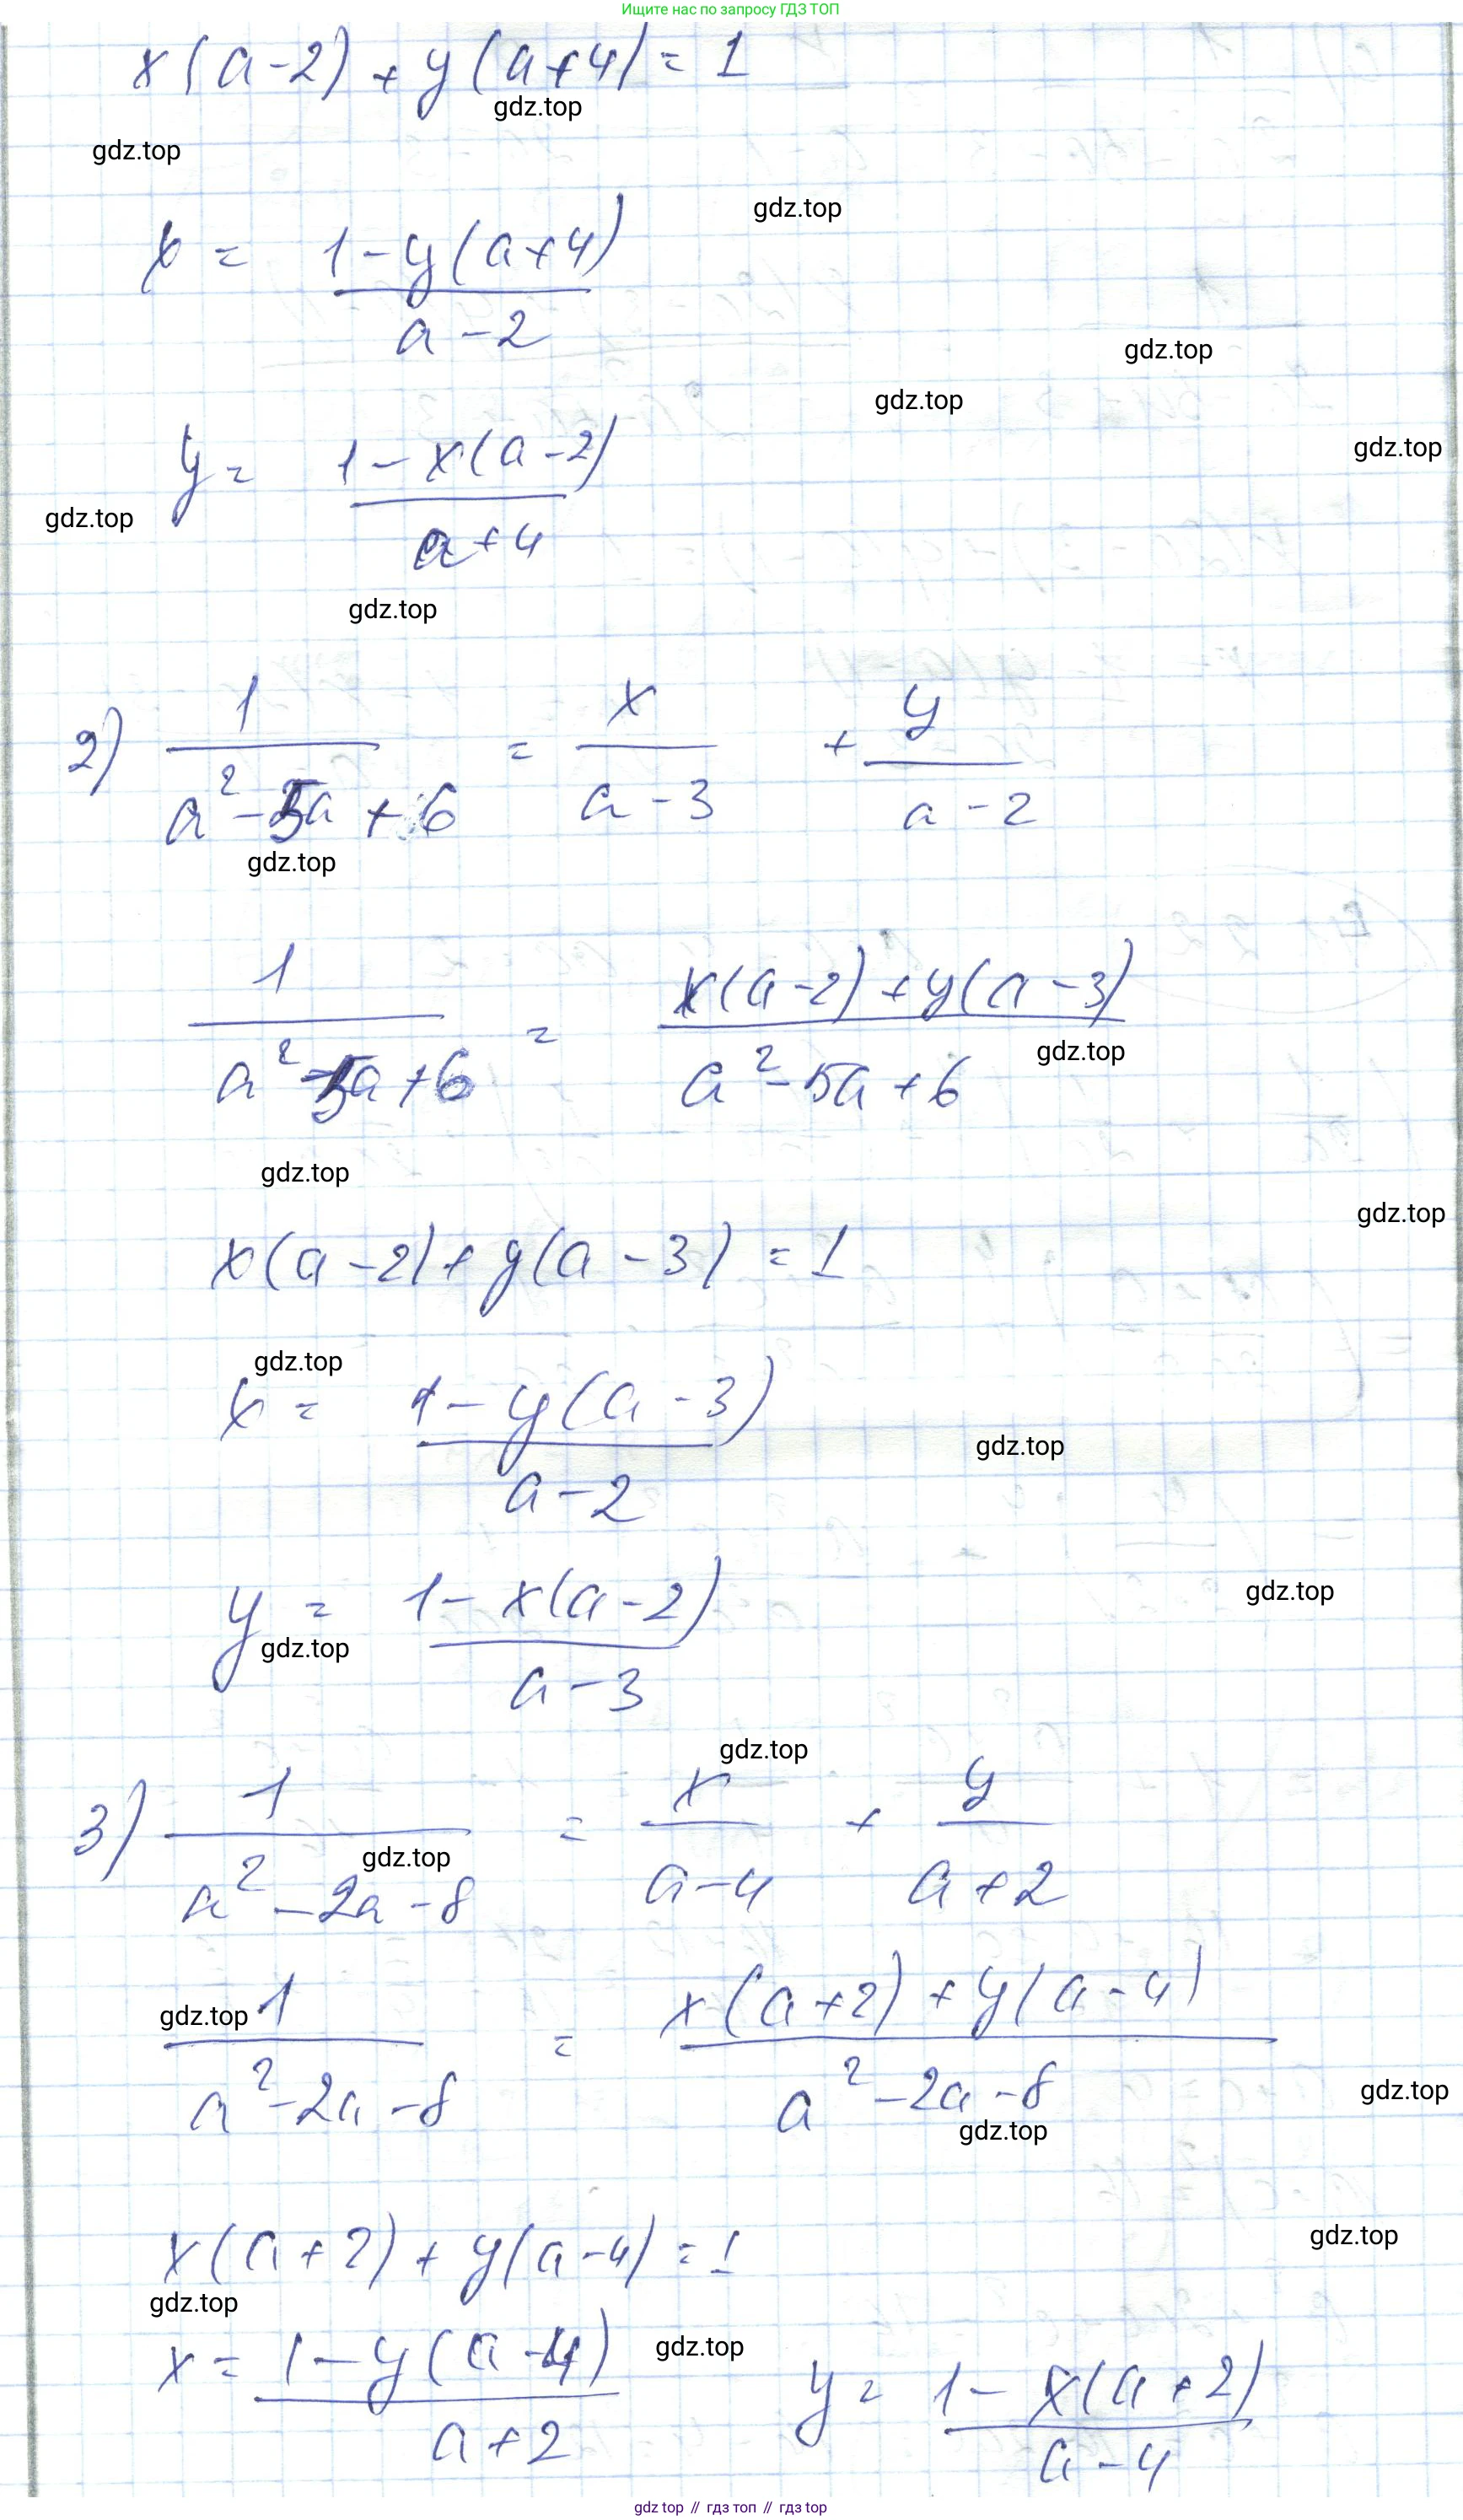 Ищите нас по запросу ГДЗ ТОП
x(a-2) + y(a+4) = 1
gdz.top
gdz.top
gdz.top
x = \frac{1-y(a+4)}{a-2}
gdz.top
gdz.top
gdz.top
y = \frac{1-x(a-2)}{a+4}
gdz.top
gdz.top
2) \frac{1}{a^2-5a+6} = \frac{x}{a-3} + \frac{y}{a-2}
gdz.top
\frac{1}{a^2-5a+6} = \frac{x(a-2)+y(a-3)}{a^2-5a+6}
gdz.top
gdz.top
gdz.top
x(a-2)+y(a-3) = 1
gdz.top
x = \frac{1-y(a-3)}{a-2}
gdz.top
gdz.top
y = \frac{1-x(a-2)}{a-3}
gdz.top
gdz.top
3) \frac{1}{a^2-2a-8} = \frac{x}{a-4} + \frac{y}{a+2}
gdz.top
gdz.top
\frac{1}{a^2-2a-8} = \frac{x(a+2)+y(a-4)}{a^2-2a-8}
gdz.top
gdz.top
gdz.top
x(a+2)+y(a-4) = 1
gdz.top
gdz.top
x = \frac{1-y(a-4)}{a+2} y = \frac{1-x(a+2)}{a-4}
gdz top // гдз топ // гдз top